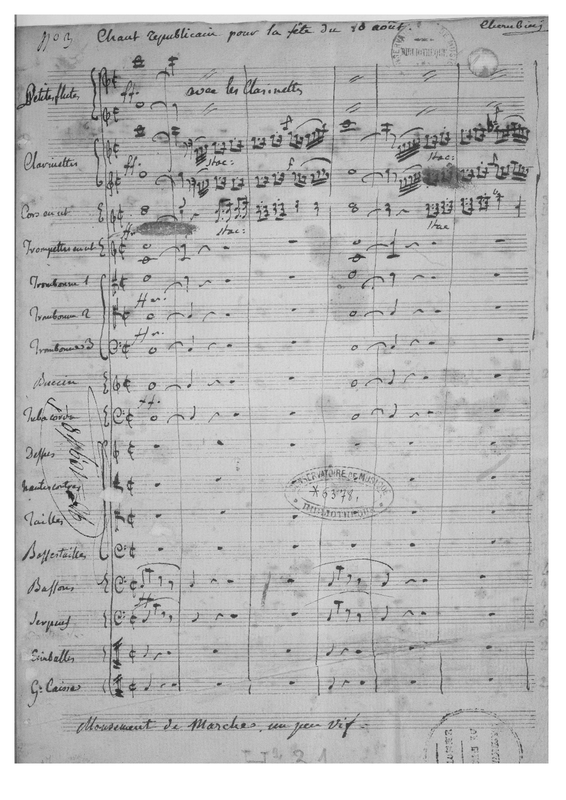 No 3 Chant republicain pour la fête du 10 août. Cherubini
Petites flutes ff. avec les Clarinettes
Clarinettes ff. stac: f stac: f
ff.
Cors en ut stac: Stac
Trompettes en ut
Trombonne 1
Trombonne 2
Trombonne 3
Buccin
Tuba corva ff.
Dessus
hautes contres
Tailles
Basses tailles
CONSERVATOIRE DE MUSIQUE
BIBLIOTHEQUE
Bassons
Serpent
Simballes
G: Caisse
Mouvement de Marche, un peu vif